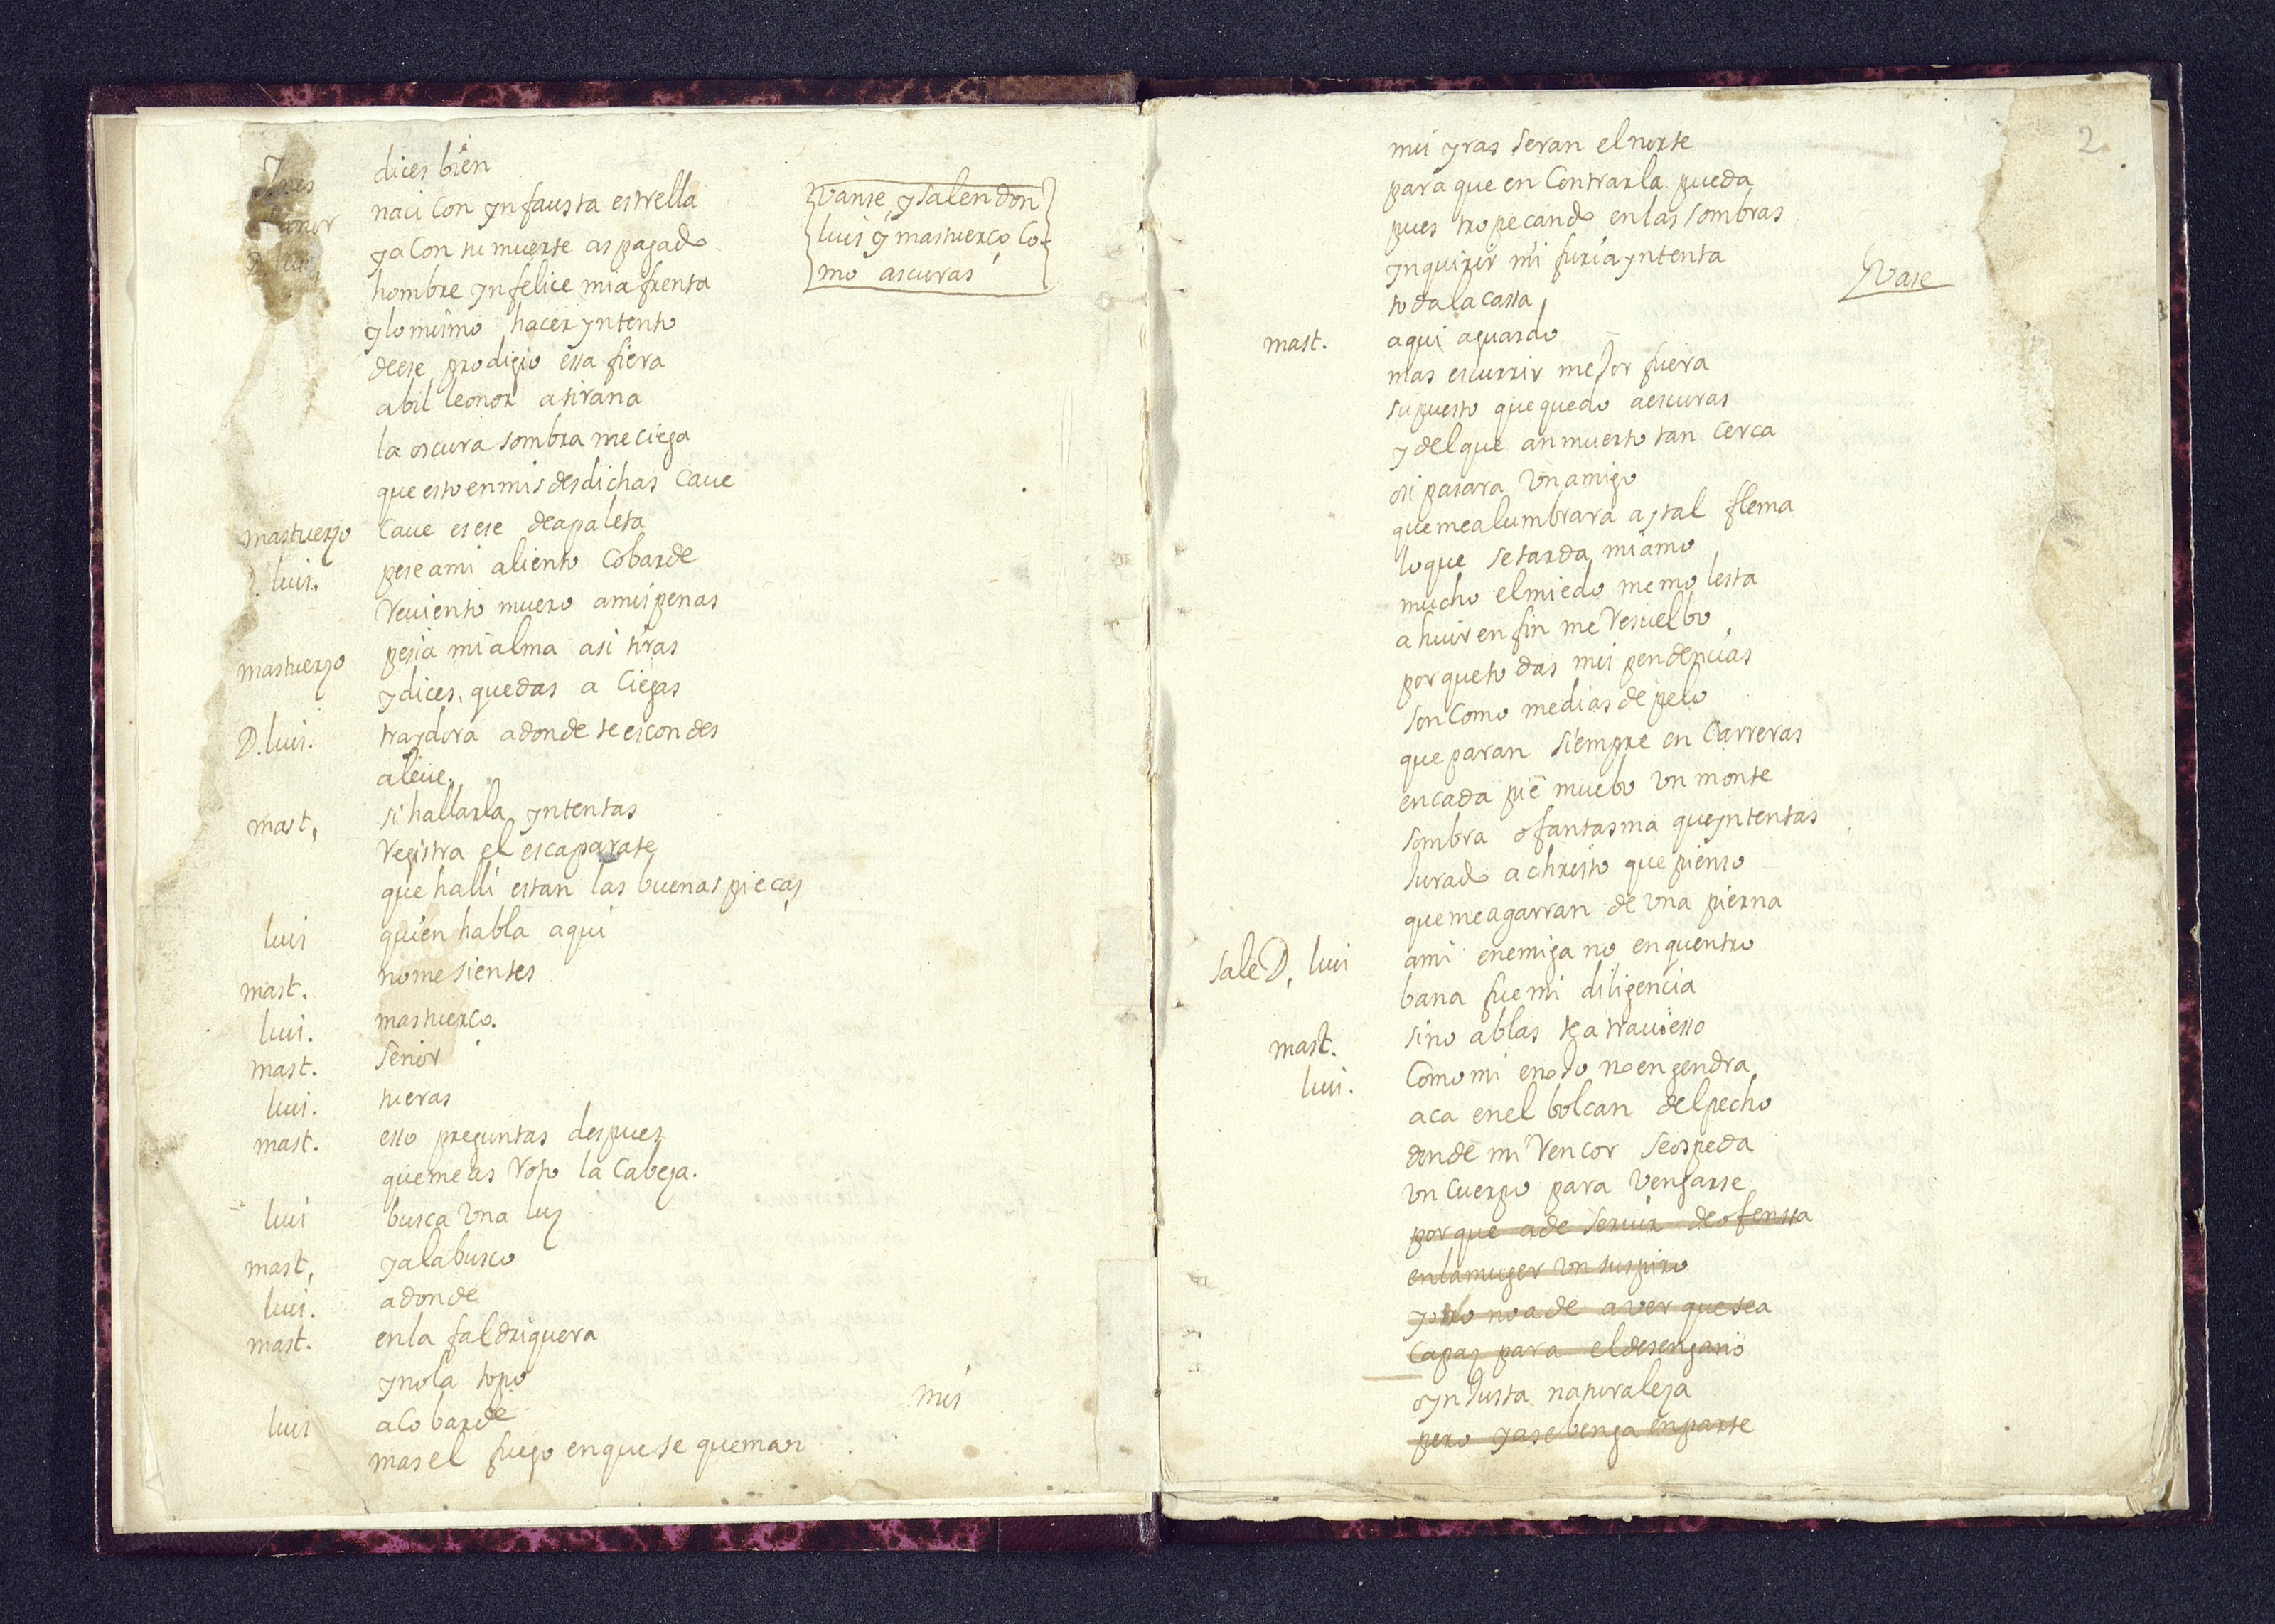 Ynes dices bien
Leonor naci Con ynfausta estrella
Vanse, y salen don
luis y mastuerço Co-
mo ascuras
D. luis ya Con tu muerte as pagado
hombre ynfelice mi afrenta
y lo mismo hacer yntento
de ese prodigio essa fiera
a bil leonor a tirana
la oscura sombra me ciega
que esto en mis desdichas Caue
mastuerzo Caue es ese de apaleta
D. luis. pese a mi aliento Cobarde
Reuiento muero a mis penas
mastuerzo pesia mi alma asi tiras
y dices, que das a Ciegas
D. luis. traydora adonde te escondes
aleue.
mast, si hallarla yntentas
Registra el escaparate
que halli estan las buenas pieças
luis quien habla aqui
mast. no me sientes
luis. mastuerço.
mast. Señor
luis. tu eras
mast. esso preguntas despues
que me as Roto la Cabeza.
luis busca Una luz
mast, ya la busco
luis. adonde
mast. en la faldriquera
y no la topo
luis a Cobarde
mas el fuego en que se queman
mis
2
mis yras seran el norte
para que en Contrarla pueda
pues tropeçando en las sombras
ynquirir mi furia yntenta
toda la cassa
Vase
mast. aqui aguardo
mas escurrir mejor fuera
supuesto que quedo aescuras
y del que an muerto tan cerca
o si pasara Un amigo
que me alumbrara ay tal flema
lo que se tarda mi amo
mucho el miedo me molesta
a huir en fin me Resuelbo
porque todas mis pendencias
son Como medias de pelo
que paran siempre en Carreras
en cada pie muebo Un monte
sombra o fantasma que yntentas
Jurado a christo que pienso
que me agarran de Una pierna
Sale D, luis a mi enemiga no enquentro
bana fue mi diligencia
mast. si no ablas te atrauiesso
luis. Como mi enoJo no engendra
aca en el bolcan del pecho
donde mi Rencor se ospeda
Un Cuerpo para Vengarse
porque a de seruir de ofenssa
en la muger Un suspiro
y no a de aver que sea
Capaz para el desengaño
o ynJusta naturaleza
pero ya se benga en parte